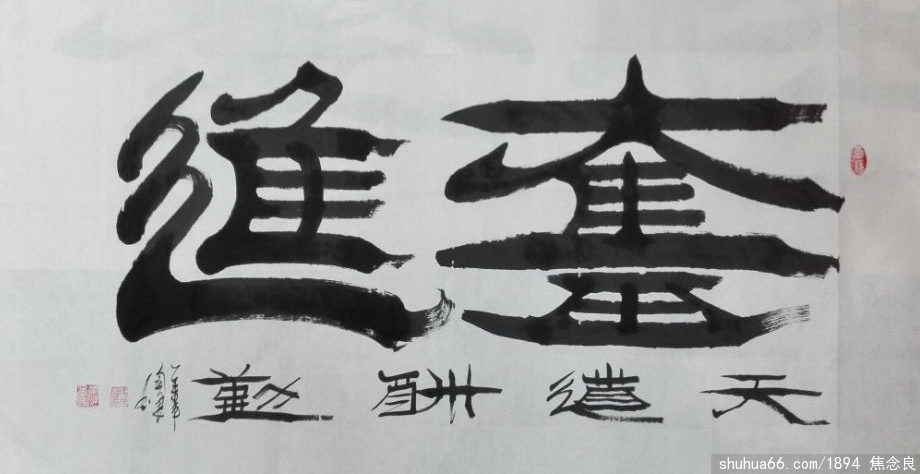 奮進
天道酬勤
shuhua66.com/1894 焦念良